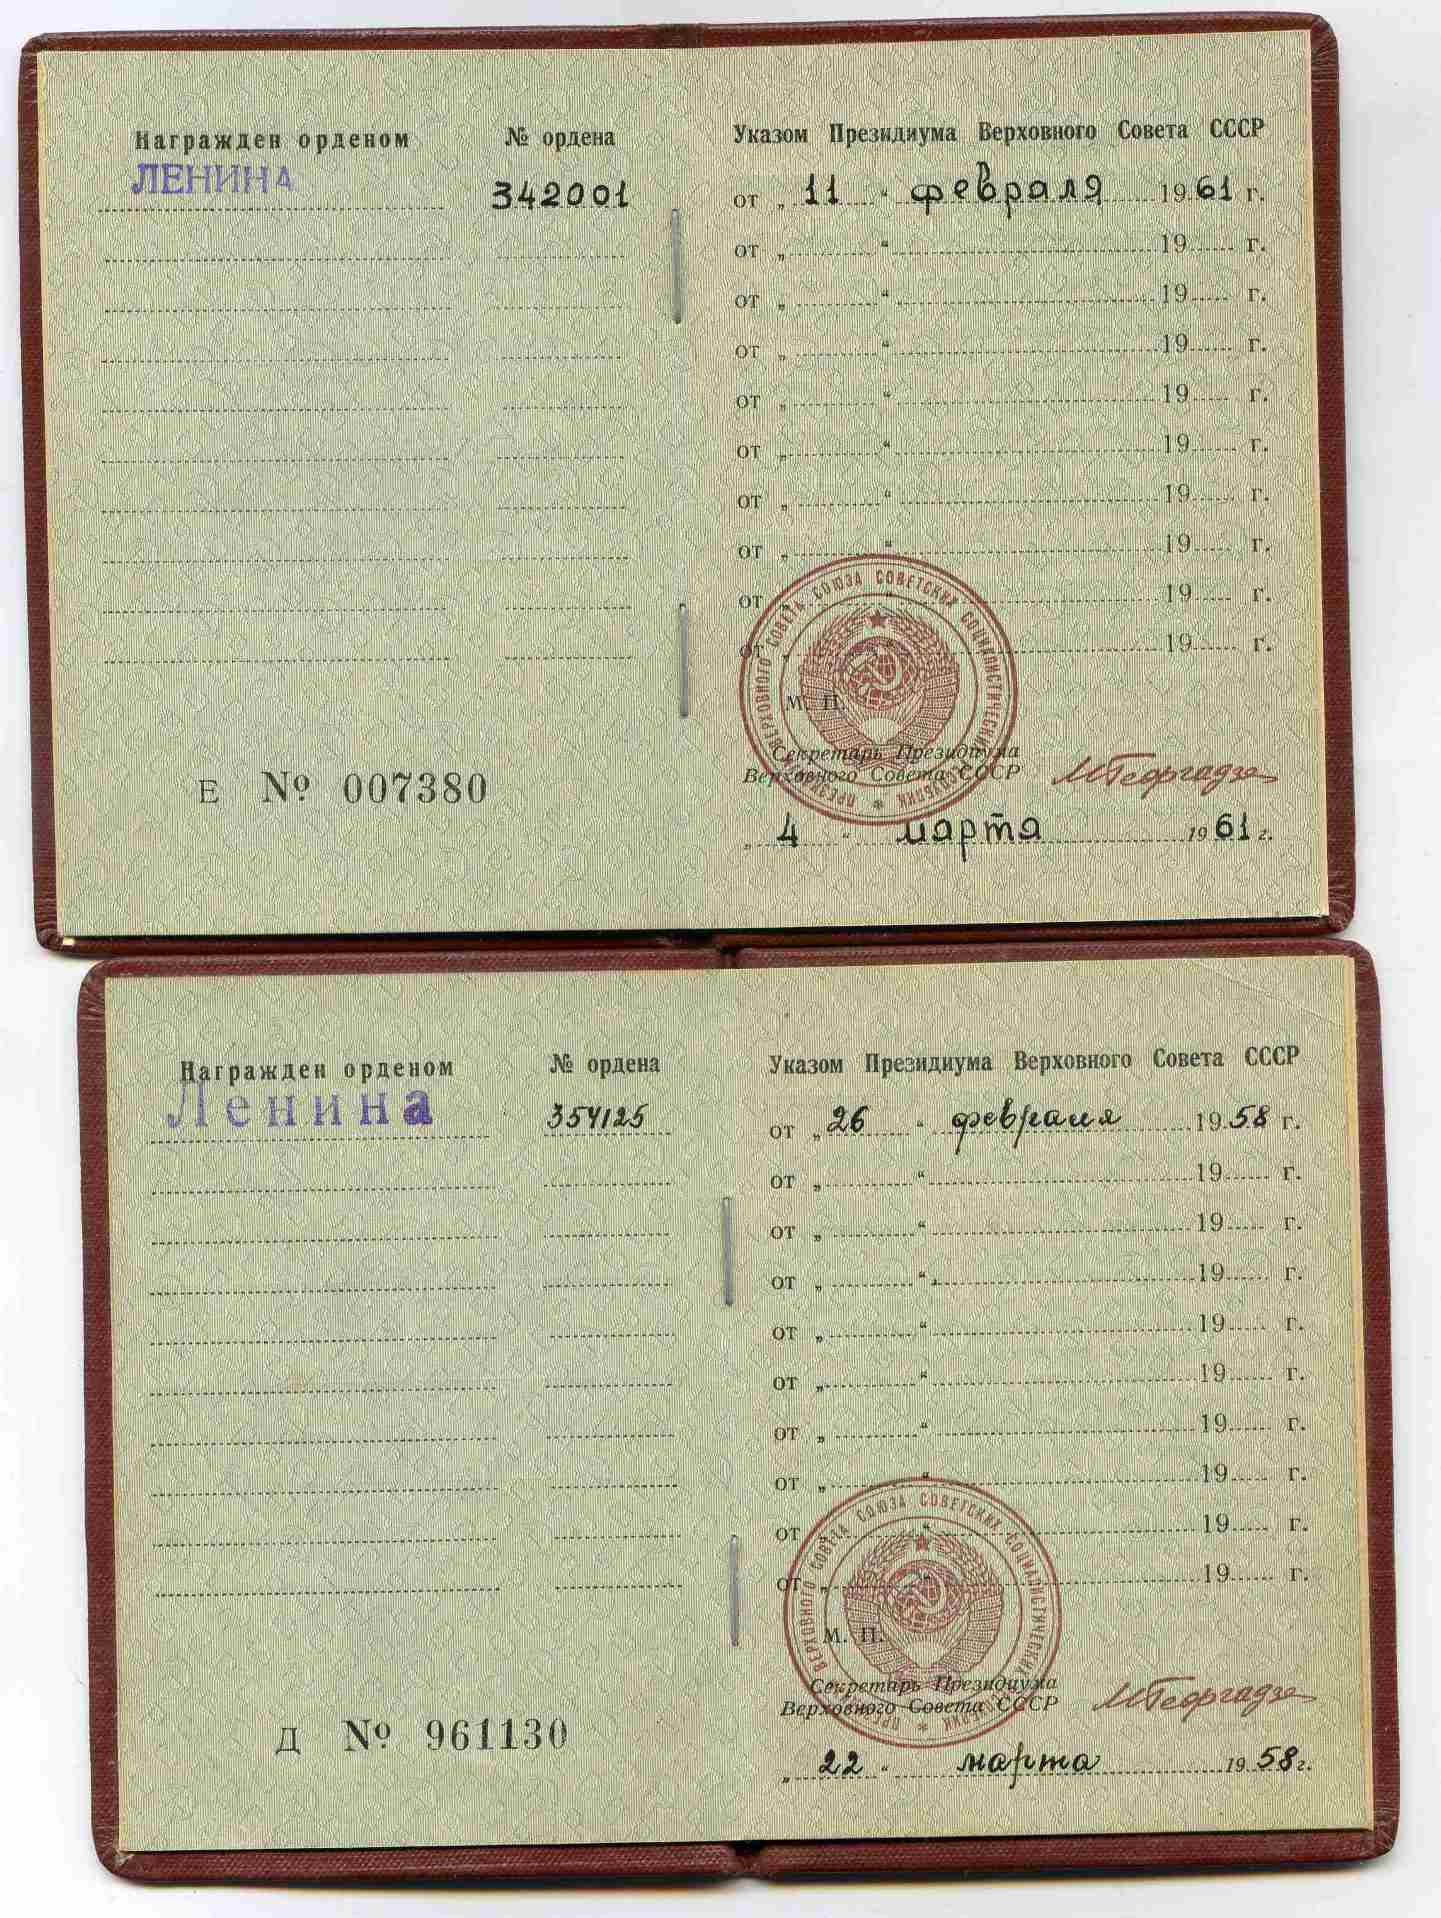 Награжден орденом № ордена
ЛЕНИНА 342001
Е № 007380
Указом Президиума Верховного Совета СССР
от „ 11 “ февраля 1961 г.
от „ “ 19 г.
от „ “ 19 г.
от „ “ 19 г.
от „ “ 19 г.
от „ “ 19 г.
от „ “ 19 г.
от „ “ 19 г.
от „ “ 19 г.
от „ “ 19 г.
ПРЕЗИДИУМ ВЕРХОВНОГО СОВЕТА СОЮЗА СОВЕТСКИХ СОЦИАЛИСТИЧЕСКИХ РЕСПУБЛИК
М. П.
Секретарь Президиума
Верховного Совета СССР МГеоргадзе
„ 4 “ марта 1961 г.
Награжден орденом № ордена
Ленина 354125
Д № 961130
Указом Президиума Верховного Совета СССР
от „ 26 “ февраля 1958 г.
от „ “ 19 г.
от „ “ 19 г.
от „ “ 19 г.
от „ “ 19 г.
от „ “ 19 г.
от „ “ 19 г.
от „ “ 19 г.
от „ “ 19 г.
от „ “ 19 г.
ПРЕЗИДИУМ ВЕРХОВНОГО СОВЕТА СОЮЗА СОВЕТСКИХ СОЦИАЛИСТИЧЕСКИХ РЕСПУБЛИК
М. П.
Секретарь Президиума
Верховного Совета СССР МГеоргадзе
„ 22 “ марта 1958 г.